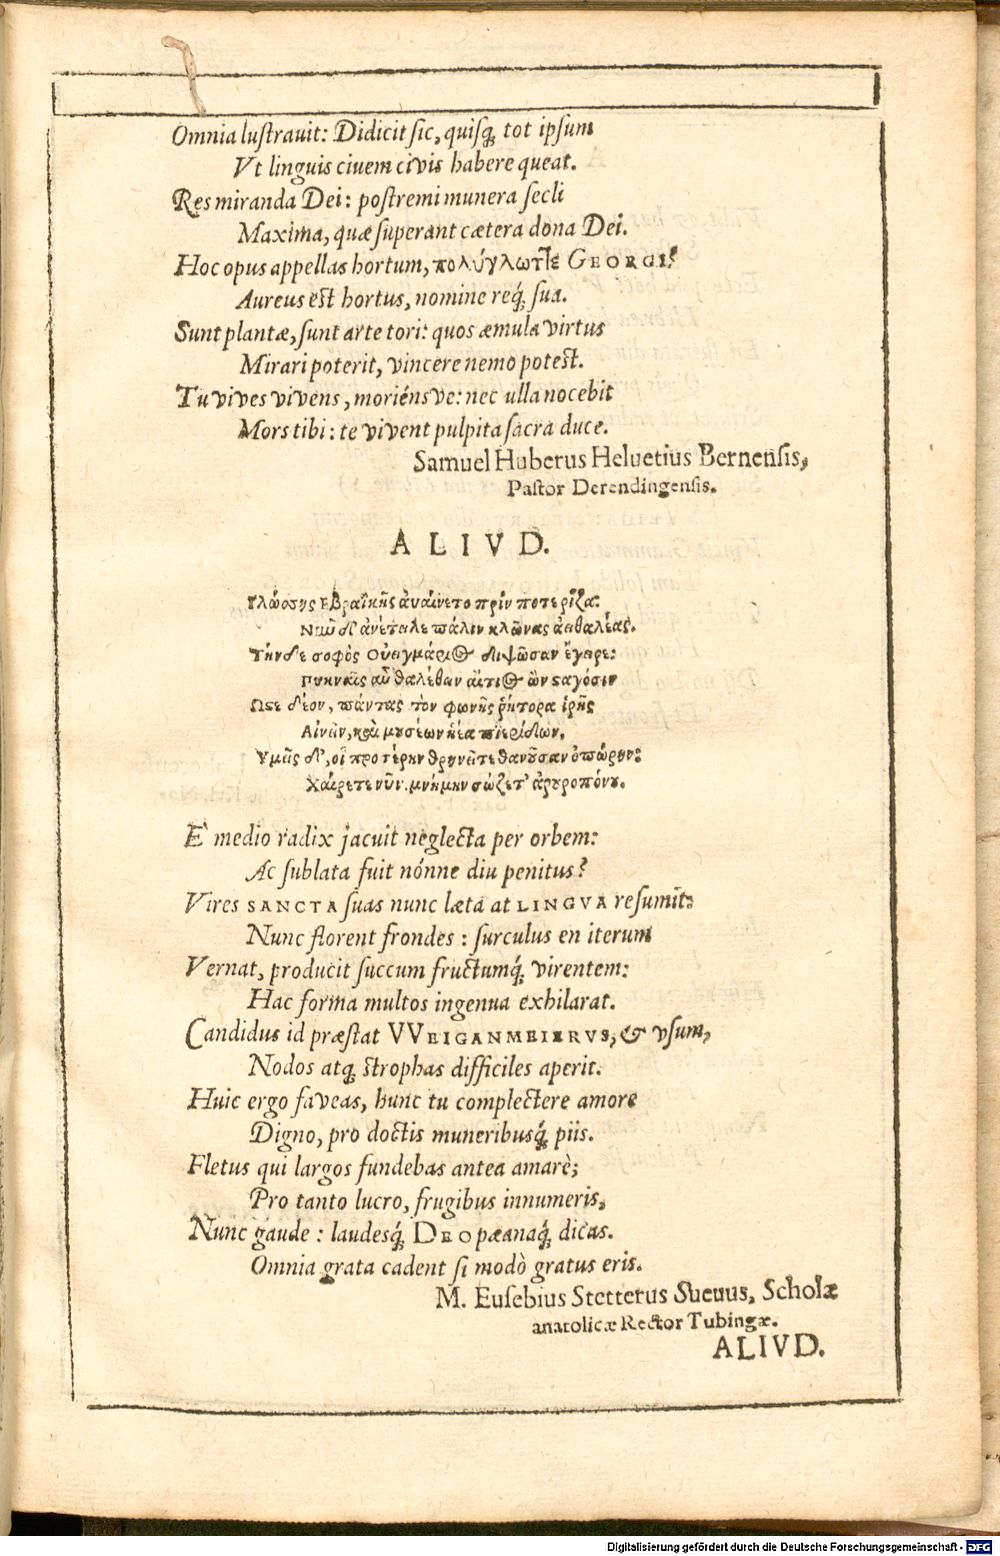 Omnia luſtrauit: Didicit ſic, quiſq́; tot ipſum
Vt linguis ciuem civis habere queat.
Res miranda Dei: poſtremi munera ſecli
Maxima, quæ ſuperant cætera dona Dei.
Hoc opus appellas hortum, πολύγλωττε GEORGI:
Aureus est hortus, nomine req́; ſua.
Sunt plantæ, ſunt arte tori: quos æmula virtus
Mirari poterit, vincere nemo potest.
Tu vives vivens, moriénsve: nec ulla nocebit
Mors tibi: te vivent pulpita ſacra duce.
Samuel Huberus Heluetius Bernenſis,
Paſtor Derendingenſis.
ALIVD.
Γλώσσης Εβραϊκῆς ἀυαίνετο πρίν ποτε ῥίζα:
Νιῦ δ' ἀνέτειλε πάλιν κλῶνας ἀειθαλέας.
Τήνδε σοφὸς Ουαγμάρι διψῶσαν ἔγειρε:
Πυκναῖς αὖ θαλέθειν αἴτι ὢν
Ωςε δέον, πάντας τὸν φωνῆς ῥήτορα ἱρῆς
Αἰνεῖν, καὶ μυσέων πιερίδων.
Υμεῖς δ', οἳ προτέρην θρηνεῖτε θανοῦσαν ὀπώρην:
Χαίρετε νῦν μνήμην σώζετ'
E medio radix jacuit neglecta per orbem:
Ac ſublata fuit nónne diu penitus?
Vires SANCTA ſuas nunc læta at LINGVA reſumit:
Nunc florent frondes: ſurculus en iterum
Vernat, producit ſuccum fructumq́; virentem:
Hac forma multos ingenua exhilarat.
Candidus id præſtat VVEIGANMEIERVS, & vſum,
Nodos atq; ſtrophas difficiles aperit.
Huic ergo faveas, hunc tu complectere amore
Digno, pro doctis muneribusq́; piis.
Fletus qui largos fundebas antea amarè;
Pro tanto lucro, frugibus innumeris,
Nunc gaude: laudesq́; DEO pæanaq́; dicas.
Omnia grata cadent ſi modò gratus eris.
M. Euſebius Stetterus Sueuus, Scholæ
anatolicæ Rector Tubingæ.
ALIVD.
Digitalisierung gefördert durch die Deutsche Forschungsgemeinschaft - DFG